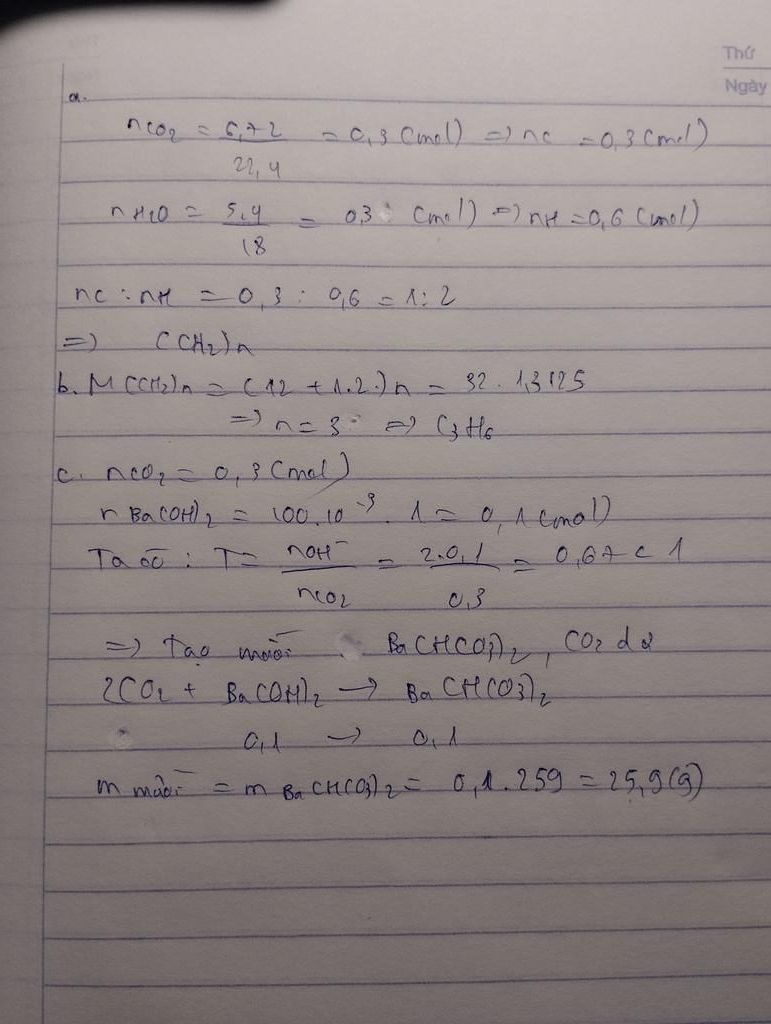 Thứ
Ngày
a.
nCO₂ = 6,72 / 22,4 = 0,3 (mol) => nC = 0,3 (mol)
nH₂O = 5,4 / 18 = 0,3 (mol) => nH = 0,6 (mol)
nC : nH = 0,3 : 0,6 = 1:2
=> (CH₂)n
b. M(CH₂)n = (12 + 1.2)n = 32 . 1,3125
=> n = 3 => C₃H₆
c. nCO₂ = 0,3 (mol)
nBa(OH)₂ = 100.10⁻³ . 1 = 0,1 (mol)
Ta có : T = nOH⁻ / nCO₂ = 2.0,1 / 0,3 = 0,67 < 1
=> Tạo muối Ba(HCO₃)₂, CO₂ dư
2CO₂ + Ba(OH)₂ → Ba(HCO₃)₂
0,1 → 0,1
m muối = mBa(HCO₃)₂ = 0,1.259 = 25,9(g)